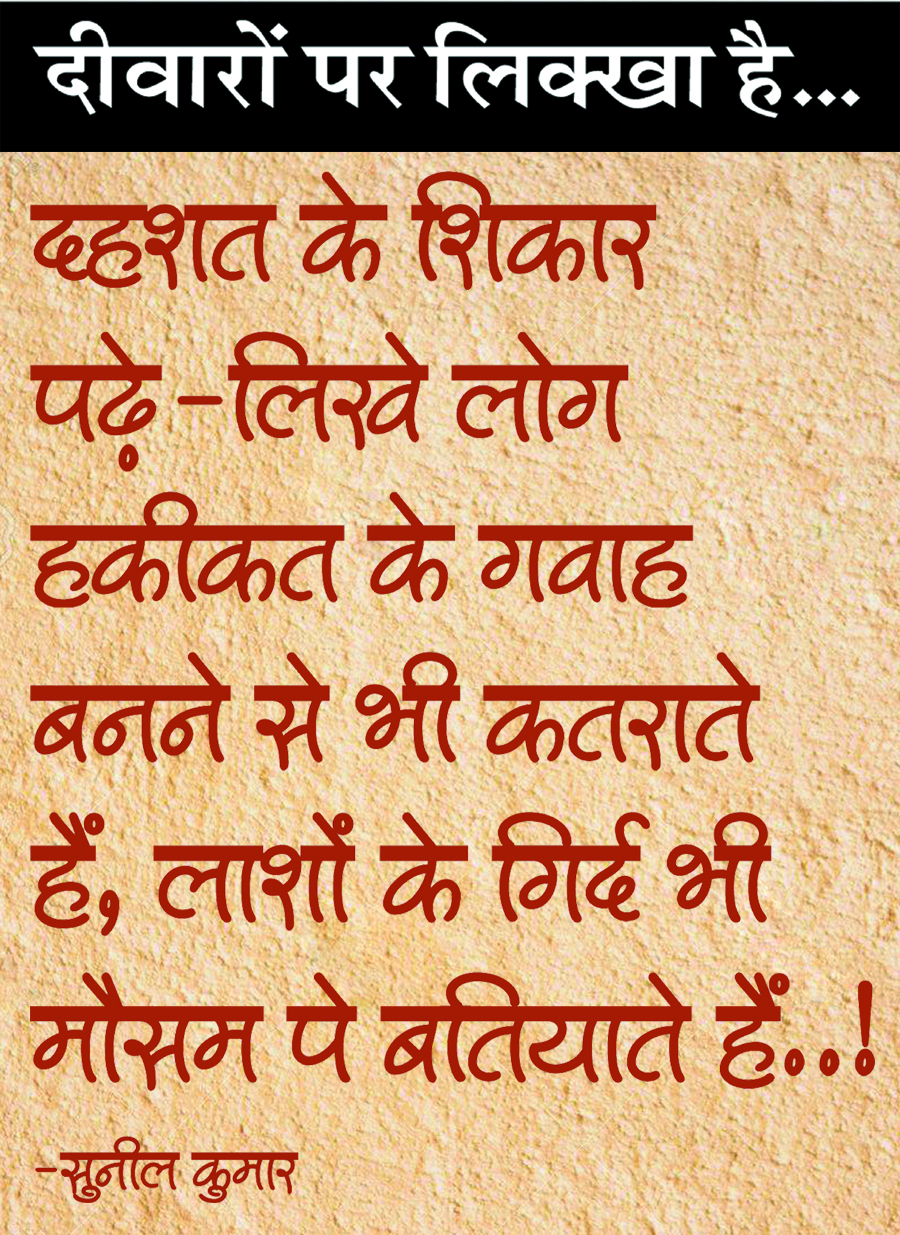 दीवारों पर लिक्खा है...
दहशत के शिकार
पढ़े-लिखे लोग
हकीकत के गवाह
बनने से भी कतराते
हैं, लाशों के गिर्द भी
मौसम पे बतियाते हैं..!
-सुनील कुमार